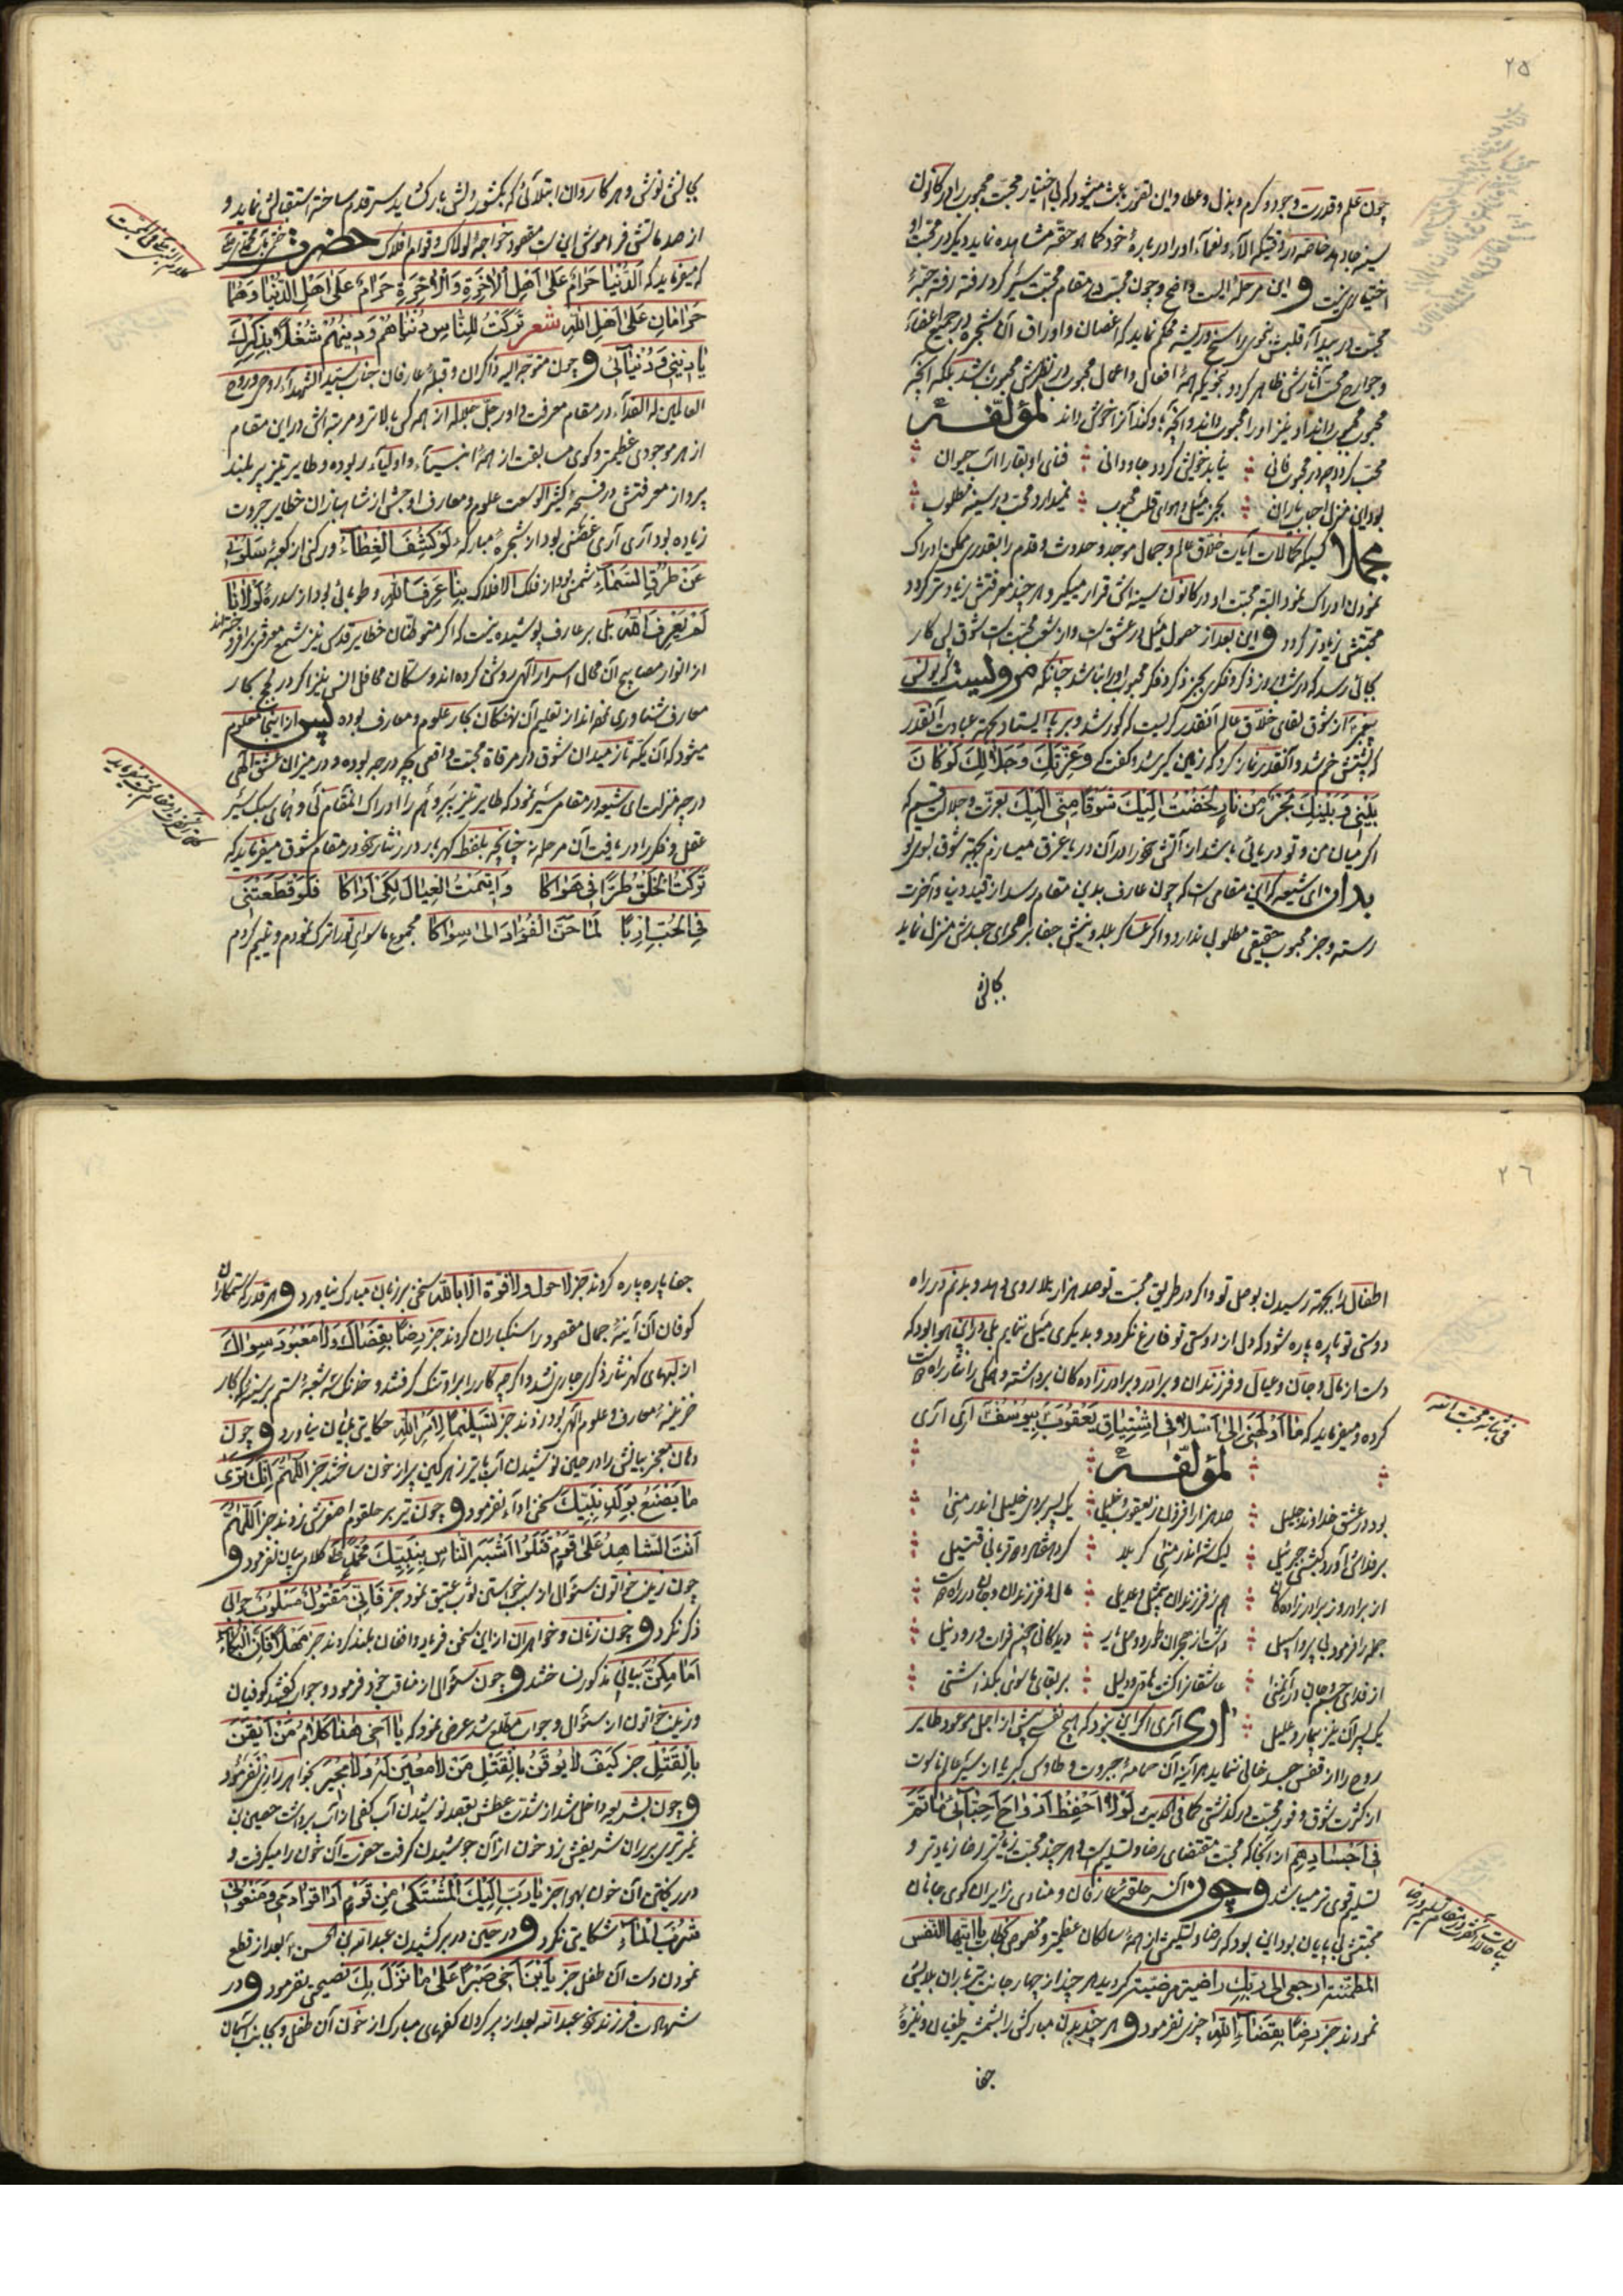 ٢٥
چون علم و قدرت وجود و کرم و بذل و عطا و این تصور باعث میشود که بی اختیار محبت محبوب را در کانون
سینه جا دهد خاصه در وقتیکه آلاء و نعماء او را درباره خود کما هو حقه مشاهده نماید دیگر در محبت او
اختیاری نیست و این مرحله ایست واضح و چون محبت در مقام محبت سیر کرد رفته رفته حبه
محبت در میدان قلبش بنحوی راسخ و ریشه محکم نماید که اغصان و اوراق آن شجره در جمیع اعضاء
و جوارح محب آثارش ظاهر گردد بنحویکه همه افعال و اعمال محبوب در نظرش محبوب باشد بلکه آنچه
محبوب محبوب داند او نیز او را محبوب داند و آنچه با او کند آنرا خوش داند لمؤلفه
محب گردد چو در محبوب فانی بیابد خویش گردد جاودانی فنای او بقا را آب حیوان
بود این منزل احباب یاران بجز میل و هوای قلب محبوب نمیدارد محب در سینه مطلوب
مجملا کسیکه کمالات آیات خلاق عالم و جمال موجد حدوث و قدم را بقدری ممکن ادراک
نمودن ادراک نمود البته محبت او در کانون سینه اش قرار میگیرد و هر چند معرفتش زیادتر گردد
محبتش زیادتر گردد و این بعد از حصول میل در عشق است و از شعب محبت است شوق پس کار
بجائی رسد که در شبانه روز ذکر و فکری بجز ذکر و فکر محبوب او را نباشد چنانکه مرویست که یونس
پیغمبر از شوق لقای خلاق عالم آنقدر گریست که کور شد و بر پا ایستاد بجهت عبادت آنقدر
که پشتش خم شد و آنقدر نماز کرد که زمین گیر شد و گفت که وَعِزَّتِكَ وَجَلَالِكَ لَوْ كَانَ
بَيْنِي وَبَيْنَكَ بَحْرٌ مِنْ نَارٍ لَخُضْتُ إِلَيْكَ شَوْقًا مِنِّي إِلَيْكَ بعزت و جلالت قسم که
اگر میان من و تو دریائی باشد از آتش خود را در آن دریا غرق میسازم بجهة شوق بسوی تو
بدان ای شیعه که این مقامی است که چون عارف بدین مقام رسد از قید دنیا و آخرت
رسته و جز محبوب حقیقی مطلوبی ندارد و اگر عساکر بلا و پیش جفا بر صحرای جسدش منزل نماید
بجانش
بجانش نوش و هر کاروان ابتلائی که بکشور دلش بار گشاید سر قدم ساخته استقبالش نماید و
از صد مانش فراموشی اینست مقصود خواجه لولاک و قوام افلاک حضرت
که میفرماید که اَلدُّنْيَا حَرَامٌ عَلَى أَهْلِ الْآخِرَةِ وَالْآخِرَةُ حَرَامٌ عَلَى أَهْلِ الدُّنْيَا وَهُمَا
حَرَامَانِ عَلَى أَهْلِ اللهِ شعر تَرَكْتُ لِلنَّاسِ دُنْيَاهُمْ وَدِينَهُمْ شُغْلًا بِذِكْرِكَ
يَا دِينِي وَدُنْيَائِي و چون متوجه الیه ذاکران و قبله عارفان جناب سید الشهداء روحی و روح
العالمین له الفداء در مقام معرفت داور جل جلاله از همه کس بالاتر و مرتبه اش در این مقام
از هر موجودی عظیمتر و گوی مسابقت از همه انبیاء و اولیاء ربوده و طایر تیز پر بلند
پرواز معرفتش در فسحه کثیر الوسعت علوم و معارف اوجش از شاهبازان خطایر جبروت
زیاده بود آری آری غصنی بود از شجره مبارکه لَوْ كُشِفَ الْغِطَاءُ و رکنی از کعبه سَلُونِي
عَنْ طُرُقِ السَّمَاءِ شمسی بود از فلک الافلاک بِنَا عُرِفَ اللهُ و طوبائی بود از سدره لَوْلَانَا
لَمْ يُعْرَفِ اللهُ بلی بر عارف پوشیده نیست که اگر متوطنان خطایر قدس نیز شمع معرفتی برافروخته اند
از انوار مصابیح آن محال اسرار الهی روشن کرده اند و سکان محافل انس نیز اگر در لجج بحار
معارف شناوری نموده اند از تعلیم آن نهنگان بحار علوم و معارف بوده پس از اینجا معلوم
میشود که آن یکه تاز میدان شوق در مرقاة محبت واقعی بچه درجه بوده و در میزان عشق الهی
در چه منزلت ای شیعه در مقام سیر نمود که طایر تیز پر وهم را ادراک آنمقام نی و همای سبک سیر
عقل و فکر را دریافت آن مرحله نه چنانچه بلفظ گهر بار درر نثار خود در مقام شوق میفرماید که
تَرَكْتُ الْخَلْقَ طُرًّا فِي هَوَاكَا وَأَيْتَمْتُ الْعِيَالَ لِكَيْ أَرَاكَا فَلَوْ قَطَّعْتَنِي
فِي الْحُبِّ إِرْبًا لَمَا حَنَّ الْفُؤَادُ إِلَى سِوَاكَا مجموع ما سوای تو را ترک نمودم و یتیم کردم
٢٦
اطفال را بجهة رسیدن بوصل تو و اگر در طریق محبت تو صد هزار بلا روی دهد و بدنم در راه
دوستی تو پاره پاره شود که دل از دوستی تو فارغ نگردد و بدیگری میل ننمایم بلی در این هوا بود که
دست از مال و جان و عیال و فرزندان و برادر و برادر زاده گان برداشته و همگی را نثار راه دوست
کرده و میفرماید که مَا أَوْلَهَنِي إِلَى أَسْلَافِي اشْتِيَاقَ يَعْقُوبَ إِلَى يُوسُفَ آری آری
فی بیان محبت الله
لمؤلفه
بود در عشق خداوند جلیل صد هزار افزون ز یعقوب و خلیل یک پسر بردی خلیل اندر منی
بر فدایش آورد کبش جبرئیل لیک شه اندر منی کربلا کرد هفتاد و دو قربانی قتیل
از برادر وز برادر زاده گان هم ز فرزندان بیمثل و عدیل مال و فرزندان و جان در راه دوست
جمله را فرمود بی پروا سبیل داشت از هجران طمع وصل یار دیدگانی چون فرات و رود نیل
از فدای جسم و جان در آن منی عاشقان را گشت هادی و دلیل بر بقای ما سوی بگذاشتی
یک پسر آن نیز بیمار و علیل آری آری اگر این نبود که هیچ نفسی پیش از اجل موعود طایر
روح را از قفس جسد خالی ننماید هر آینه آن حمامه جبروت و طاوس کبریا از سیر عالم ناسوت
از کثرت شوق و وفور محبت در گذشتی کما فی الحدیث لَوْلَا أَحْفَظُ أَرْوَاحَ أَحِبَّائِي مَا تَقَرُّ
فِي أَجْسَادِهِمْ از آنجا که محبت مقتضای رضا و تسلیم است و هر چند محبت زیادتر رضا زیادتر و
تسلیم قوی تر میباشد و چون آن سر حلقه عارفان و منادی زایران کوی جانان
محبتش بی پایان بود این بود که رضا و تسلیمش از همه سالکان عظیمتر و مخصوص بخطاب یا ایتها النفس
المطمئنة ارجعی الی ربک راضیة مرضیة گردید هر چند از چهار جانب تیر باران بلایش
نمودند جز رِضًا بِقَضَاءِ اللهِ چیزی نفرمود و هر چند بدن مبارکش را بشمشیر طغیان و نیزه
جفا
جفا پاره پاره کردند جز لا حول ولا قوة الا بالله سخنی بر زبان مبارک نیاورد و هر قدر که ستمکاران
کوفان آن آینه جمال مقصود را سنگباران کردند جز رِضًا بِقَضَائِكَ وَلَا مَعْبُودَ سِوَاكَ
از لبهای گهر نثار ذکری جاری نشد و اگر چه کار را بر او تنگ گرفتند و خدنگ سه شعبه ستم بر سینه کار کار
خزینه معارف و علوم الهی بود زدند جز تَسْلِيمًا لِأَمْرِ اللهِ حکایتی بمیان نیاورد و چون
دهان معجز بیانش را در حین نوشیدن آب با تیر زهرگین پر از خون ساختند جز اَللّٰهُمَّ إِنَّكَ تَرَى
مَا يُصْنَعُ بِوَلَدِ نَبِيِّكَ سخنی اداء نفرمود و چون تیر بر حلقوم اصغرش زدند جز اَللّٰهُمَّ
أَنْتَ الشَّاهِدُ عَلَى قَوْمٍ قَتَلُوا أَشْبَهَ النَّاسِ بِنَبِيِّكَ مُحَمَّدٍ کلامی بیان نفرمود و
چون زینب خواتون سئوال از سبب خواستن ثوب عتیق نمود جز فَإِنِّي مَقْتُولٌ مَسْلُوبٌ جوابی
ذکر نکرد و چون زنان و خواهران از این سخن فریاد و افغان بلند کردند جز مَهْلًا فَإِنَّ الْبُكَاءَ
أَمَامَكُنَّ بیانی مذکور نساخت و چون سئوالی از مناقب خود فرمود و جواب نگفتند کوفیان
و زینب خواتون از سئوال و جواب مطلع شد عرض نمود که يَا أَخِي هٰذَا كَلَامُ مَنْ أَيْقَنَ
بِالْقَتْلِ جز كَيْفَ لَا يُوقِنُ بِالْقَتْلِ مَنْ لَا مُعِينَ لَهُ وَلَا مُجِيرَ بخواهر رازی نفرمود
و چون بشریعه داخل شد از شدت عطش بقصد نوشیدن آب کفی از آب برداشت حصین بن
نمیر تیری بر ران شریفش زد خون از آن جوشیدن گرفت حضرت آن خون را میگرفت و
در ریختن آن خون بهوا جز يَا رَبِّ إِلَيْكَ الْمُشْتَكَى مِنْ قَوْمٍ أَرَاقُوا دَمِي وَمَنَعُونِي
شُرْبَ الْمَاءِ شکایتی نکرد و در حین در بر کشیدن عبدالله بن الحسن بعد از قطع
نمودن دست آن طفل جز يَا ابْنَ أَخِي صَبْرًا عَلَى مَا نَزَلَ بِكَ نصیحتی نفرمود و در
شهادت فرزند خود عبدالله بعد از پر کردن کفهای مبارک از خون آن طفل و بجانب آسمان